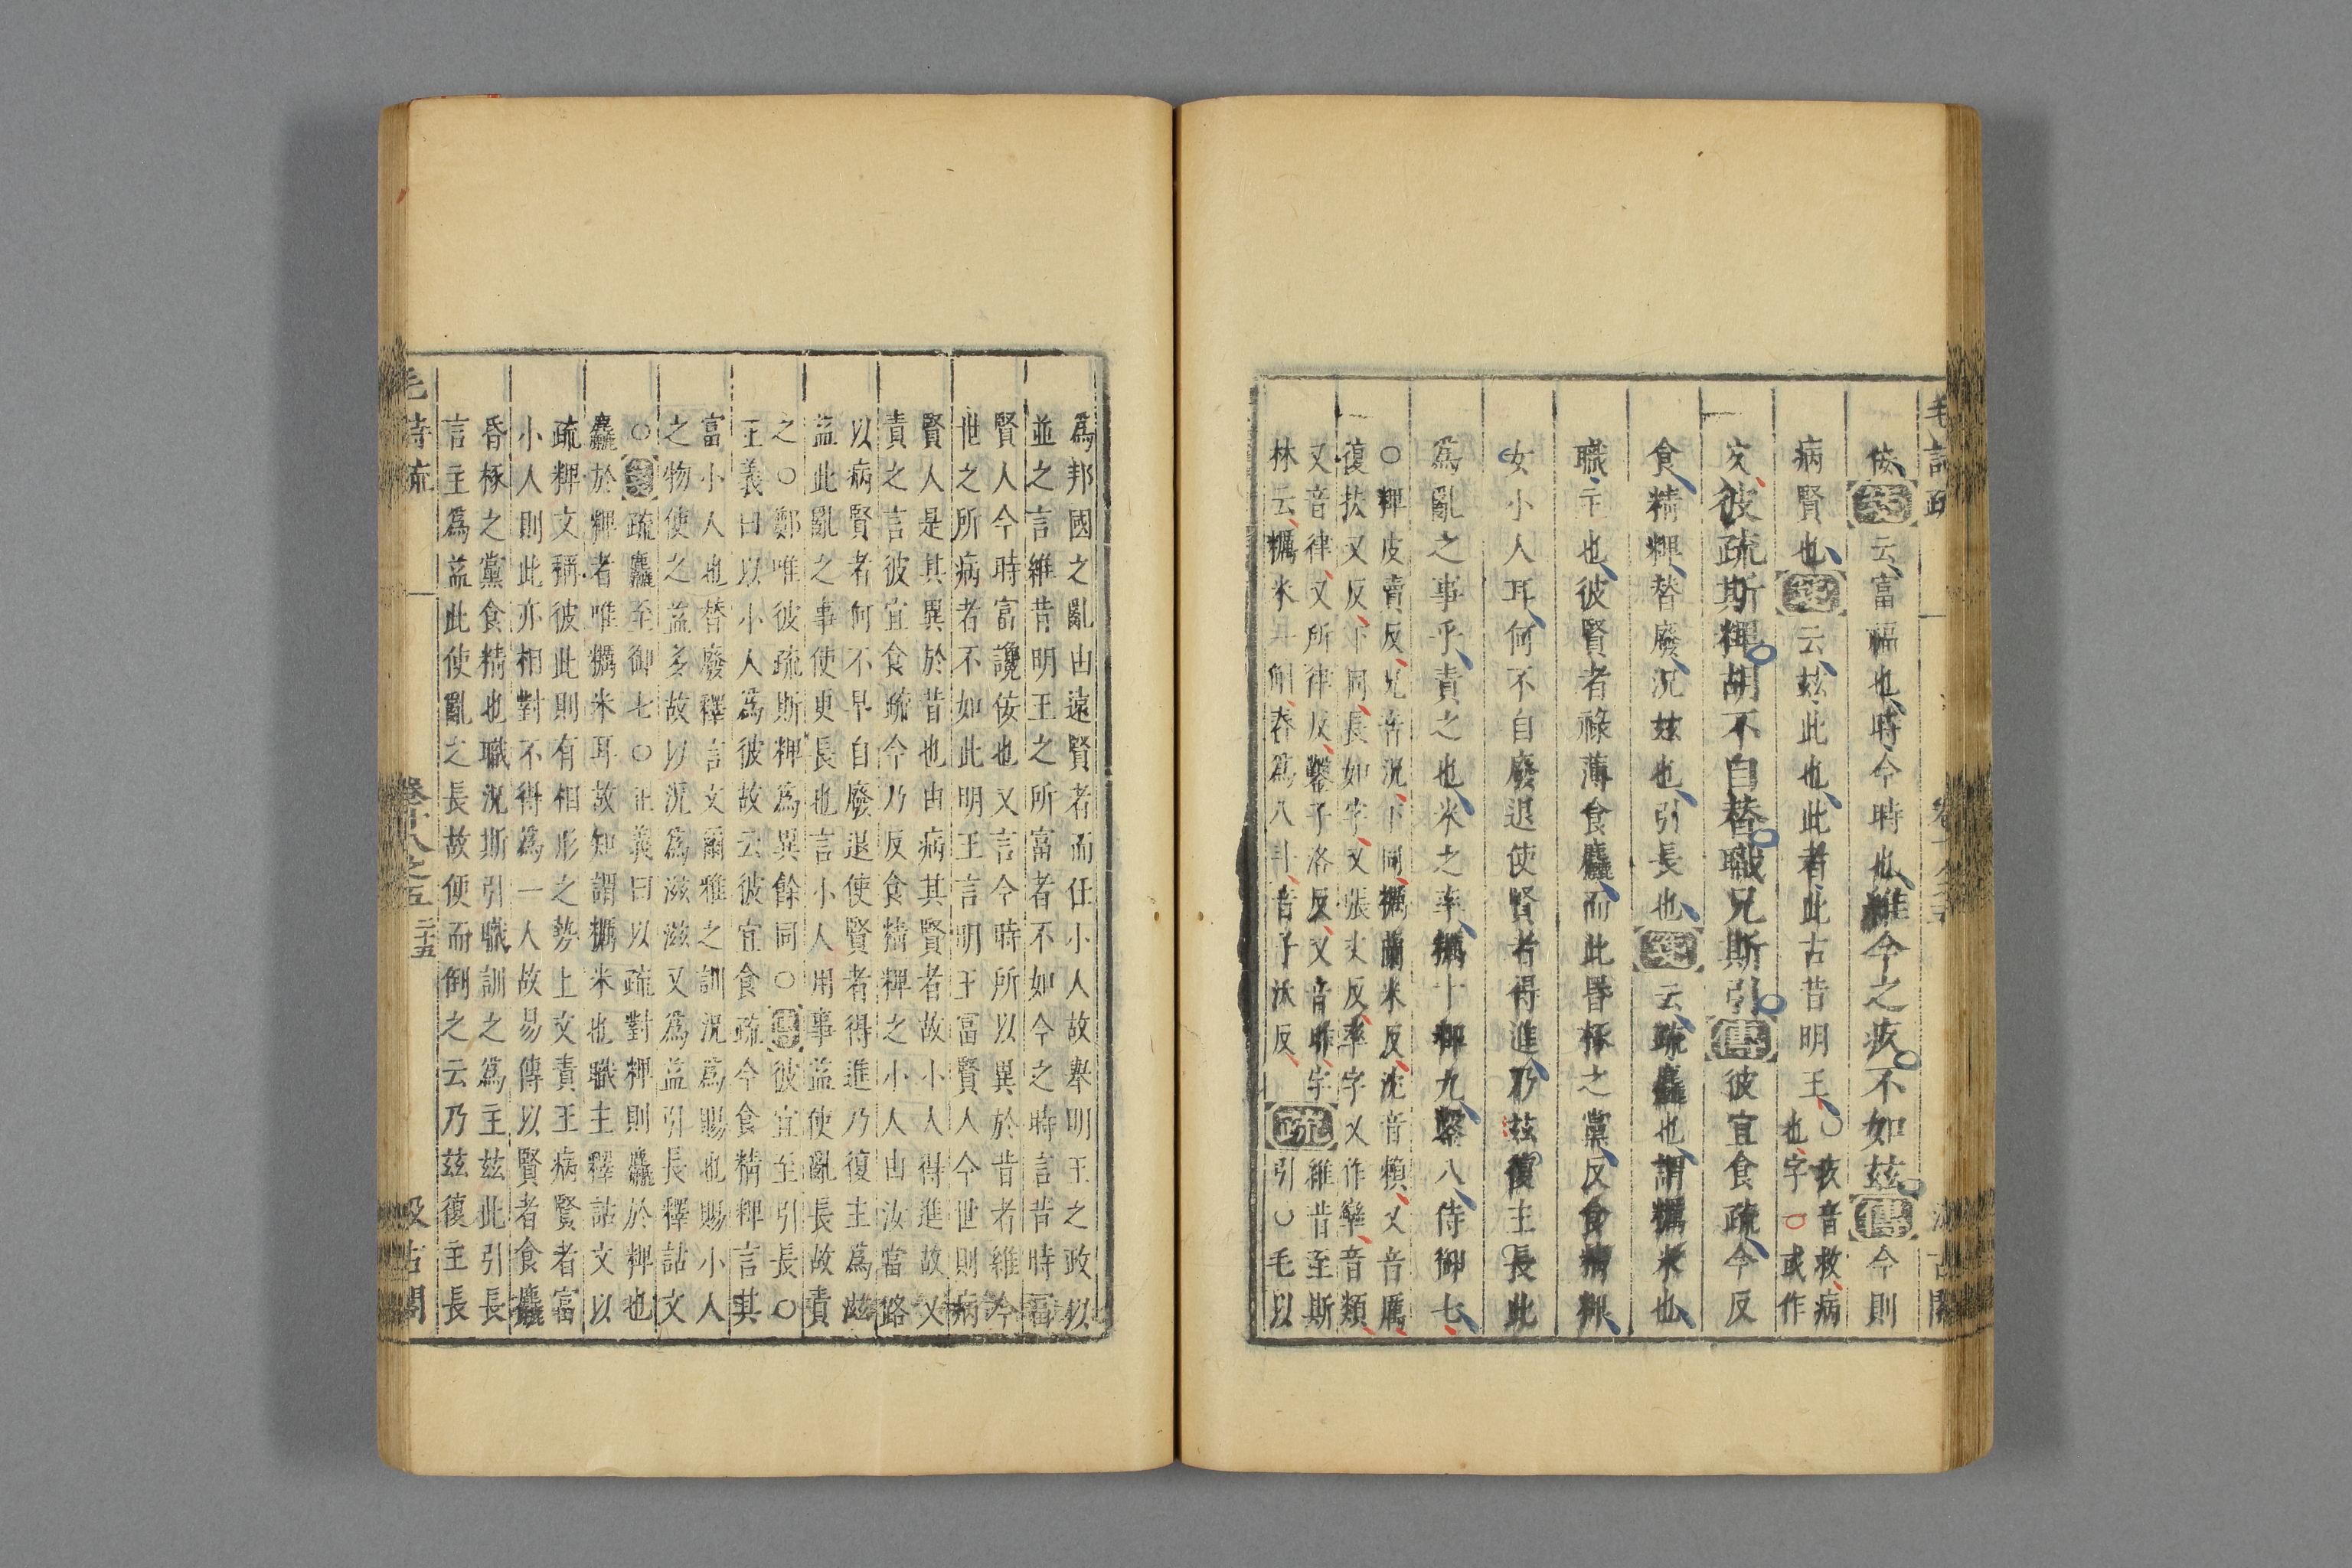 佞箋云富福也時今時也維今之疚不如茲傳今則
病賢也箋云茲此也此者此古昔明王○疚音救病
也字或作
疚彼疏斯粺胡不自替職兄斯引傳彼宜食疏今反
食精粺替廢況茲也引長也箋云疏麤也謂糲米也
職主也彼賢者祿薄食麤而此昬椓之黨反食精粺
女小人耳何不自廢退使賢者得進乃茲復主長此
爲亂之事乎責之也米之率糲十粺九鑿八侍御七
○粺皮賣反兄音況下同糲蘭米反沈音賴又音厲
復扶又反下同長如字又張丈反率字又作䢦音類
又音律又所律反鑿子洛反又音昨字
林云糲米一斛舂爲八斗音子沃反疏維昔至斯
引○毛以
爲邦國之亂由遠賢者而任小人故舉明王之政以
並之言維昔明王之所富者不如今之時言昔時富
賢人今時富讒佞也又言今時所以異於昔者維今
世之所病者不如此明王言明王富賢人今世則病
賢人是其異於昔也由病其賢者故小人得進故又
責之言彼宜食疏今乃反食精粺之小人由汝當路
以病賢者何不早自廢退使賢者得進乃復主爲滋
益此亂之事使更長也言小人用事益使亂長故責
之○鄭唯彼疏斯粺爲異餘同○傳彼宜至引長○
正義曰以小人爲彼故云彼宜食疏今食精粺言其
富小人也替廢釋言文爾雅之訓況爲賜也賜小人
之物使之益多故以況爲滋滋又爲益引長釋詁文
○箋疏麤至御七○正義曰以疏對粺則麤於粺也
麤於粺者唯糲米耳故知謂糲米也職主釋詁文以
疏粺文稱彼此則有相形之勢上文責王病賢者富
小人則此亦相對不得爲一人故易傳以賢者食麤
昏椓之黨食精也職況斯引職訓之爲主茲此引長
言主爲益此使亂之長故便而倒之云乃茲復主長
毛詩疏 卷十八之五 二十五 汲古閣